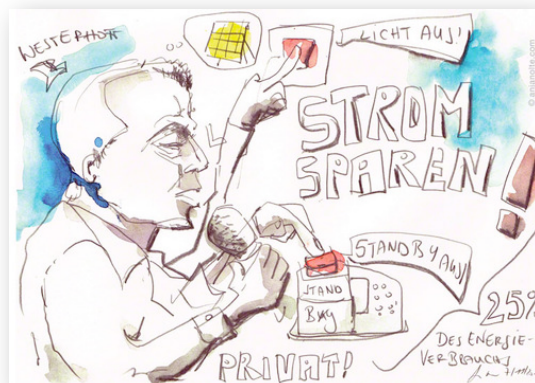 WESTERHOFF
LICHT AUS!
STROM
SPAREN!
STANDBY AUS
STAND
BAY
25%
DES ENERGIE-
VERBRAUCHS
PRIVAT!